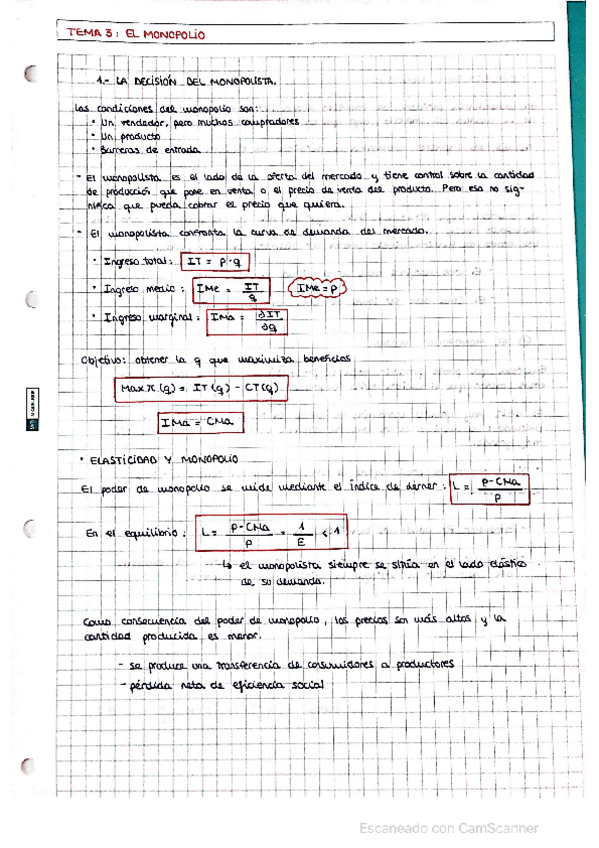 TEMA 3: EL MONOPOLIO
1.- LA DECISIÓN DEL MONOPOLISTA.
Las condiciones del monopolio son:
• Un vendedor, pero muchos compradores
• Un producto
• Barreras de entrada
- El monopolista es el lado de la oferta del mercado y tiene control sobre la cantidad
de producción que pone en venta o el precio de venta del producto. Pero eso no sig-
nifica que pueda cobrar el precio que quiera.
- El monopolista confronta la curva de demanda del mercado.
• Ingreso total: IT = p·q
• Ingreso medio: IMe = IT/q IMe = p
• Ingreso marginal: IMa = ∂IT/∂q
Objetivo: obtener la q que maximiza beneficios
Max π(q) = IT(q) - CT(q)
IMa = CMa
• ELASTICIDAD Y MONOPOLIO
El poder de monopolio se mide mediante el índice de Lerner: L = p-CMa/p
En el equilibrio: L = p-CMa/p = 1/E < 1
↳ el monopolista siempre se sitúa en el lado elástico
de su demanda.
Como consecuencia del poder de monopolio, los precios son más altos y la
cantidad producida es menor.
- se produce una transferencia de consumidores a productores
- pérdida neta de eficiencia social
Escaneado con CamScanner